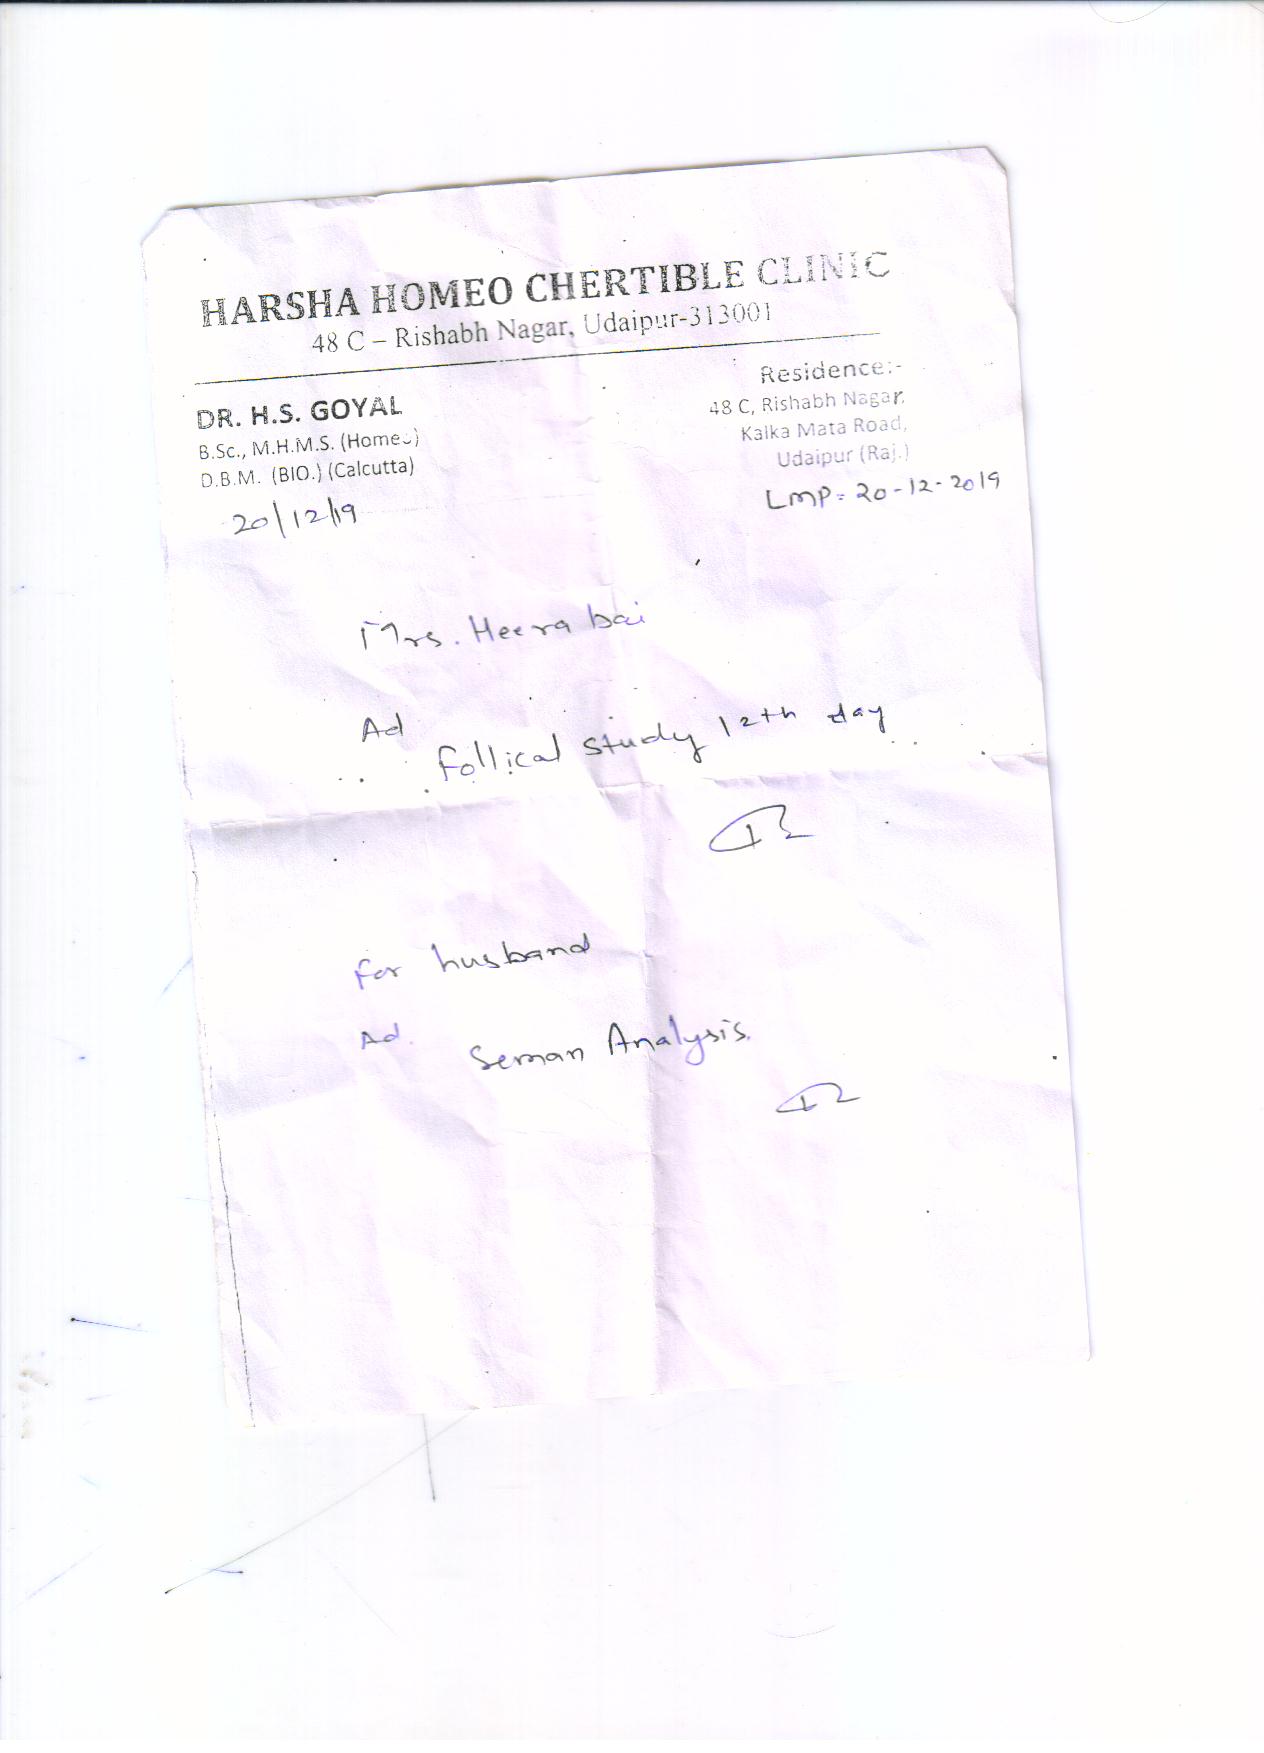 HARSHA HOMEO CHERTIBLE CLINIC
48 C – Rishabh Nagar, Udaipur-313001
DR. H.S. GOYAL
B.Sc., M.H.M.S. (Homeo)
D.B.M. (BIO.) (Calcutta)
20/12/19
Residence:-
48 C, Rishabh Nagar,
Kalka Mata Road,
Udaipur (Raj.)
LMP= 20-12-2019
Mrs. Heera bai
Ad
Follical study 12th day
For husband
Ad.
Seman Analysis.